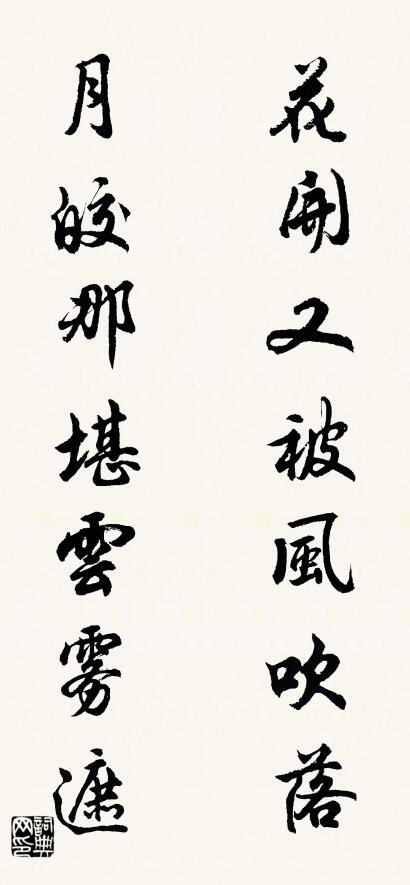 花開又被風吹落
月皎那堪雲霧遮
詞典网印